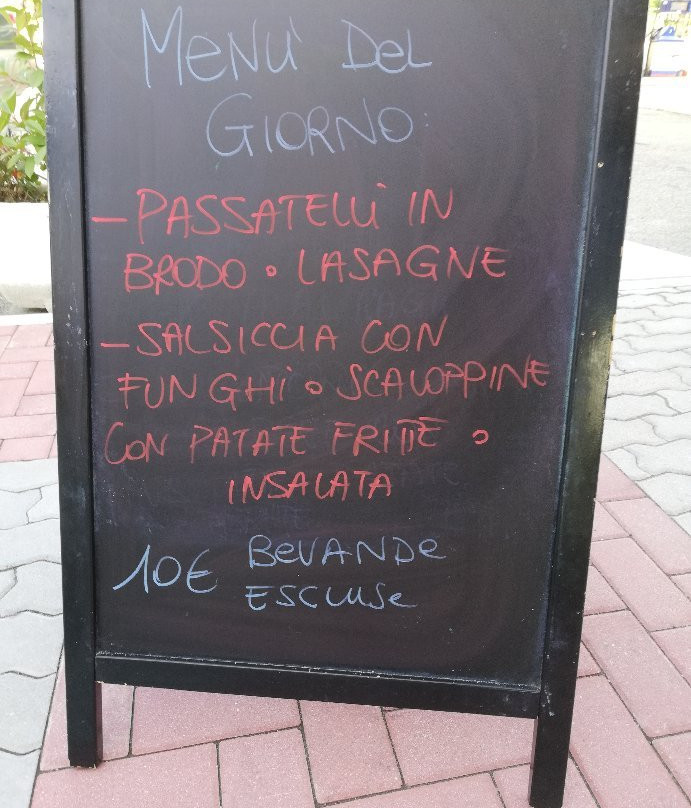 MENÙ DEL
GIORNO:
- PASSATELLI IN
BRODO O LASAGNE
- SALSICCIA CON
FUNGHI O SCALOPPINE
CON PATATE FRITTE O
INSALATA
10€ BEVANDE
ESCLUSE